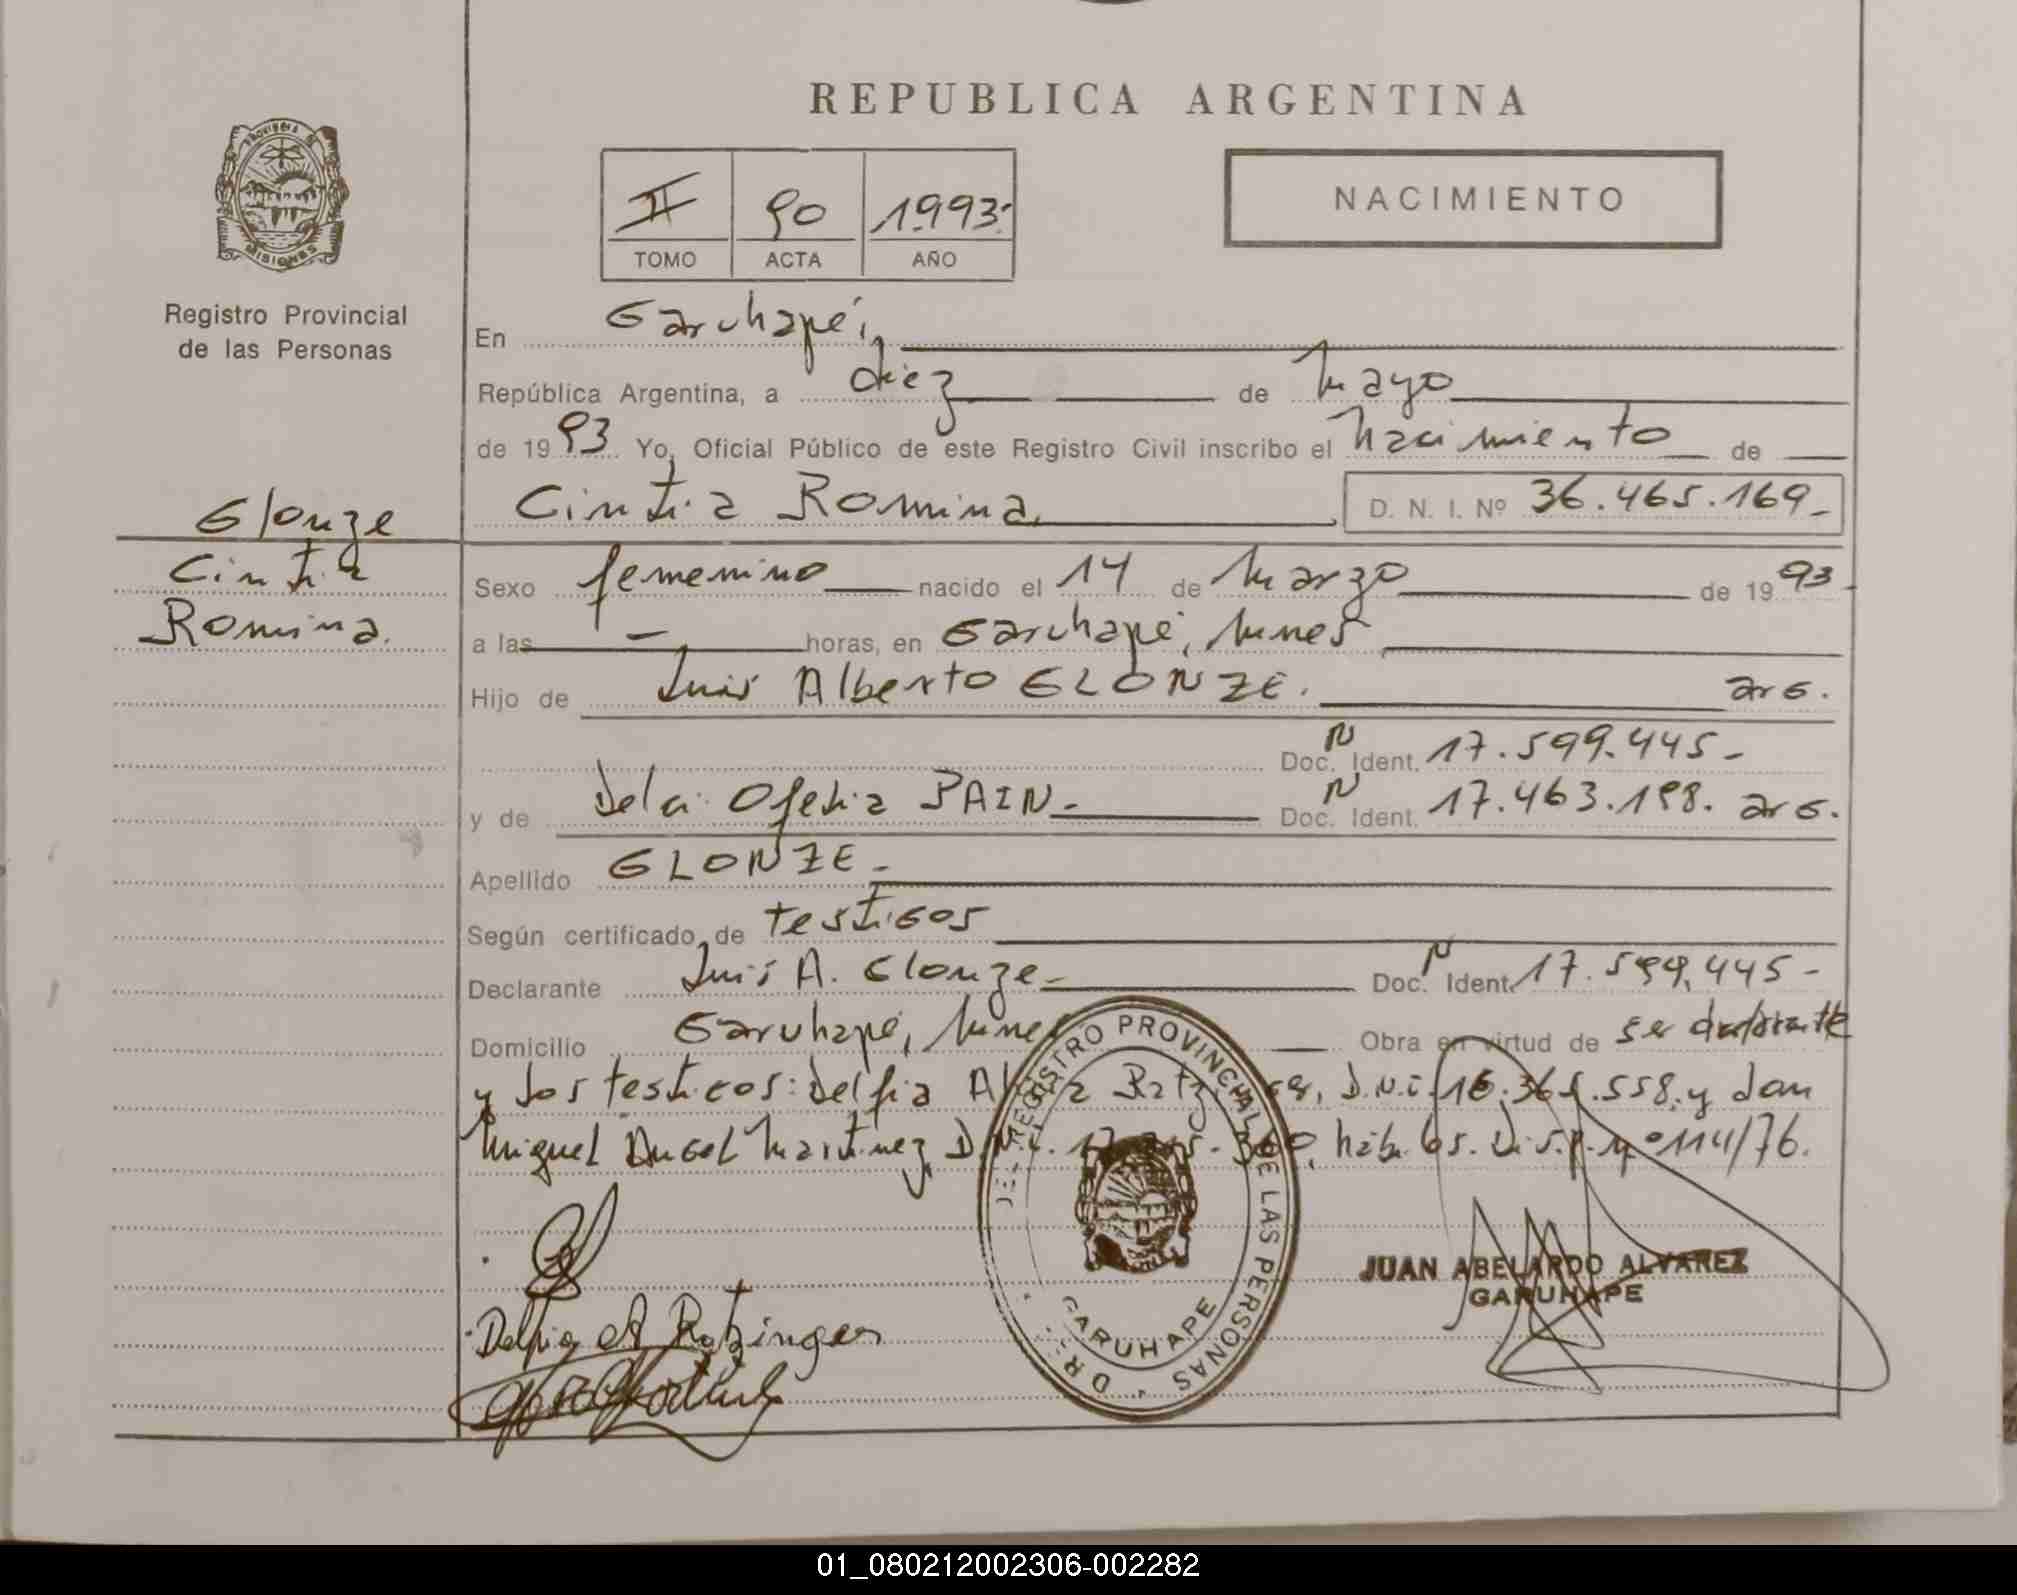 REPUBLICA ARGENTINA
PROVINCIA DE
MISIONES
Registro Provincial
de las Personas
II 90 1993.
TOMO ACTA AÑO
NACIMIENTO
En Garuhapé,
República Argentina, a diez de Mayo
de 1993. Yo, Oficial Público de este Registro Civil inscribo el Nacimiento de
Cintia Romina, D. N. I. Nº 36.465.169-
Glonze
Cintia
Romina.
Sexo femenino nacido el 14 de Marzo de 1993-
a las - horas, en Garuhapé, lunes
Hijo de Luis Alberto GLONZE. arg.
Doc. N Ident. 17.599.445-
y de Ofelia PAIN- Doc. N Ident. 17.463.198. arg.
Apellido GLONZE-
Según certificado de testigos
Declarante Luis A. Glonze- Doc. N Ident. 17.599.445-
Domicilio Garuhapé, Obra en virtud de ser declarante
y los testigos: Delfia D.N.I. y don
Miguel Angel Martinez D.N.I. Disp. nº 114/76.
REGISTRO PROVINCIAL DE LAS PERSONAS
GARUHAPE
JUAN ABELARDO ALVAREZ
GARUHAPE
Delfia A Ratzinger
01_080212002306-002282